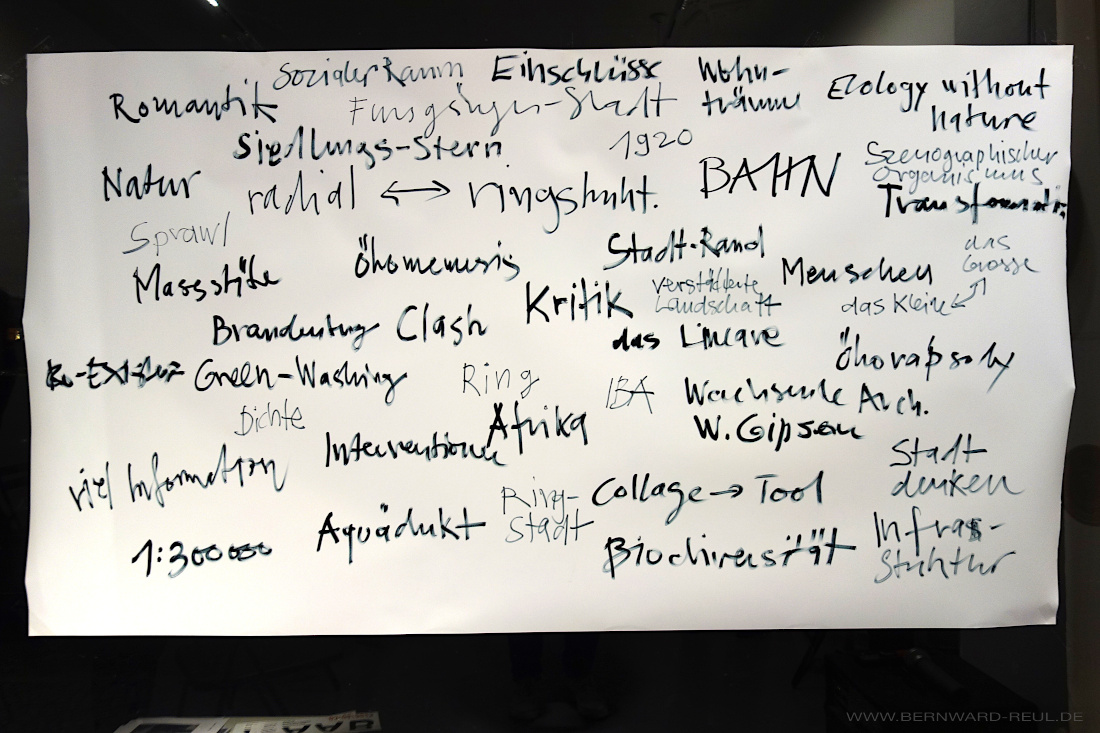 Sozialer Raum Einschlüsse Wohn-
träume
Romantik Fussgänger-Stadt Ecology without
nature
Siedlungs-Stern 1920
Natur radial ↔ ringstrukt. BAHN Szenographischer
Organismus
Transformati
Sprawl
Massstäbe Ökomemesis Stadt-Rand das
Grosse
Kritik verstädterte
Landschaft Menschen das Kleine
Brandenburg Clash das Lineare Ökorapsody
Green-Washing Ring IBA Wachsende Arch.
W. Gibson
Dichte Afrika
viel Information Interventionen Stadt
denken
Ring-
Stadt Collage → Tool
1:300000 Aquädukt Biodiversität Infras-
truktur
WWW.BERNWARD-REUL.DE